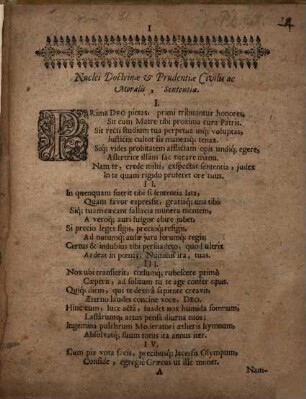 I
Nuclei Doctrinæ & Prudentiæ Civilis ac
Moralis, Sententiæ.
I.
PRima DEO pietas: primi tribuantur honores,
Sit cum Matre tibi proxima cura Patris.
Sit recti studium tua perpetuò usq; voluptas,
Justitiæ cultor sis maneasq; tenax.
Siq; vides probitatem afflictam opis indiq; egere,
Assertrice illam fac tueare manu.
Nam te, crede mihi, exspectat sententia, judex
In te quam rigido proferet ore tuus.
II.
In quenquam fuerit tibi si sententia lata,
Quam favor expressit, gratiaq; una tibi
Siq; tuam mercant fallacia munera mentem,
A veroq; auri fulgor abire jubet:
Si precio leges figis, precioq; refigis.
Ad nutumq; auri jura forumq; regis;
Certus & indubius tibi persuadeto, quod ultrix
Ardeat in pœnas Numinis ira, tuas.
III.
Nox ubi transierit, cœlumq; rubescere primò
Cœperit, ad solitum tu te age confer opus.
Quiq; diem, qui te dextrâ sapiente creavit,
Æterno laudes concine voce, DEO.
Hinc eum, luce actâ, suadet nox humida somnum,
Lassárumq; artus pensa diurna tuos:
Ingemina pulchrum Moderatori ætheris hymnum,
Absolvatq; suum totus ita annus iter.
IV.
Cum pia vota facis, precibusq; lacessis Olympum,
Conside, egregiè Græcus ut ille monet.
A Nam-